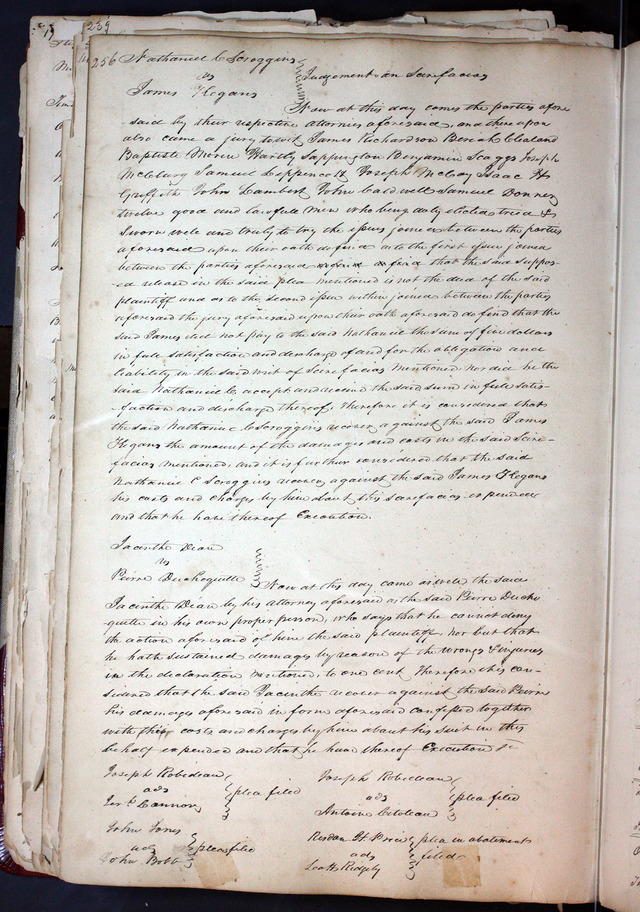 239
256 Nathaniel C Scroggins
vs Judgement on Scirefacias
James Hogans
Now at this day comes the parties afore
said by their respective attornies aforesaid, and thereupon
also came a jury towit James Richardson Beriah Cleland
Baptiste Hartly Sappington Benjamin Scaggs Joseph
McClburg Samuel Lippencott Joseph McCoy Isaac H
Griffith John Lambert John Caldwell Samuel Bonner
twelve good and lawfull men who being duly elected tried &
Sworn well and truly to try the issues joined between the parties
aforesaid upon their oath do find as to the first issue joined
between the parties aforesaid that the said suppos-
ed release in the said plea mentioned is not the deed of the said
plaintiff and as to the second issue within joined between the parties
aforesaid the jury aforesaid upon their oath aforesaid do find that the
said James did not pay to the said Nathaniel the sum of five dollars
in full satisfaction and discharge of and for the obligation and
liability in the said writ of Scirefacias mentioned nor did he the
said Nathaniel C accept and receive the said sum in full satis-
faction and discharge thereof, therefore it is considered that
the said Nathaniel C Scroggins recover against the said James
Hogans the amount of the damages and costs in the said Scire-
facias mentioned, and it is further considered that the said
Nathaniel C Scroggins recover against the said James Hogans
his costs and charges by him about his scirefacias expended
and that he have thereof Execution.
Jacinthe Dean
vs
Pierre Duchoquette Now at this day came as well the said
Jacinthe Dean by his attorney aforesaid as the said Pierre Ducho
quette in his own proper person, who says that he cannot deny
the action aforesaid of him the said plaintiff, nor but that
he hath sustained damages by reason of the wrongs & injuries
in the declaration mentioned, to one cent, Therefore it is con-
sidered that the said Jacinthe recover against the said Pierre
his damages aforesaid in form aforesaid confessed together
with his costs and charges by him about his suit in this
behalf expended and that he have thereof Execution &c
Joseph Robideau
ads plea filed
Cannon
Joseph Robideau
ads plea filed
Antoine
John Jones
ads plea filed
John Bobb
Risdon H Price plea in abatement
ads filed
Ridgely